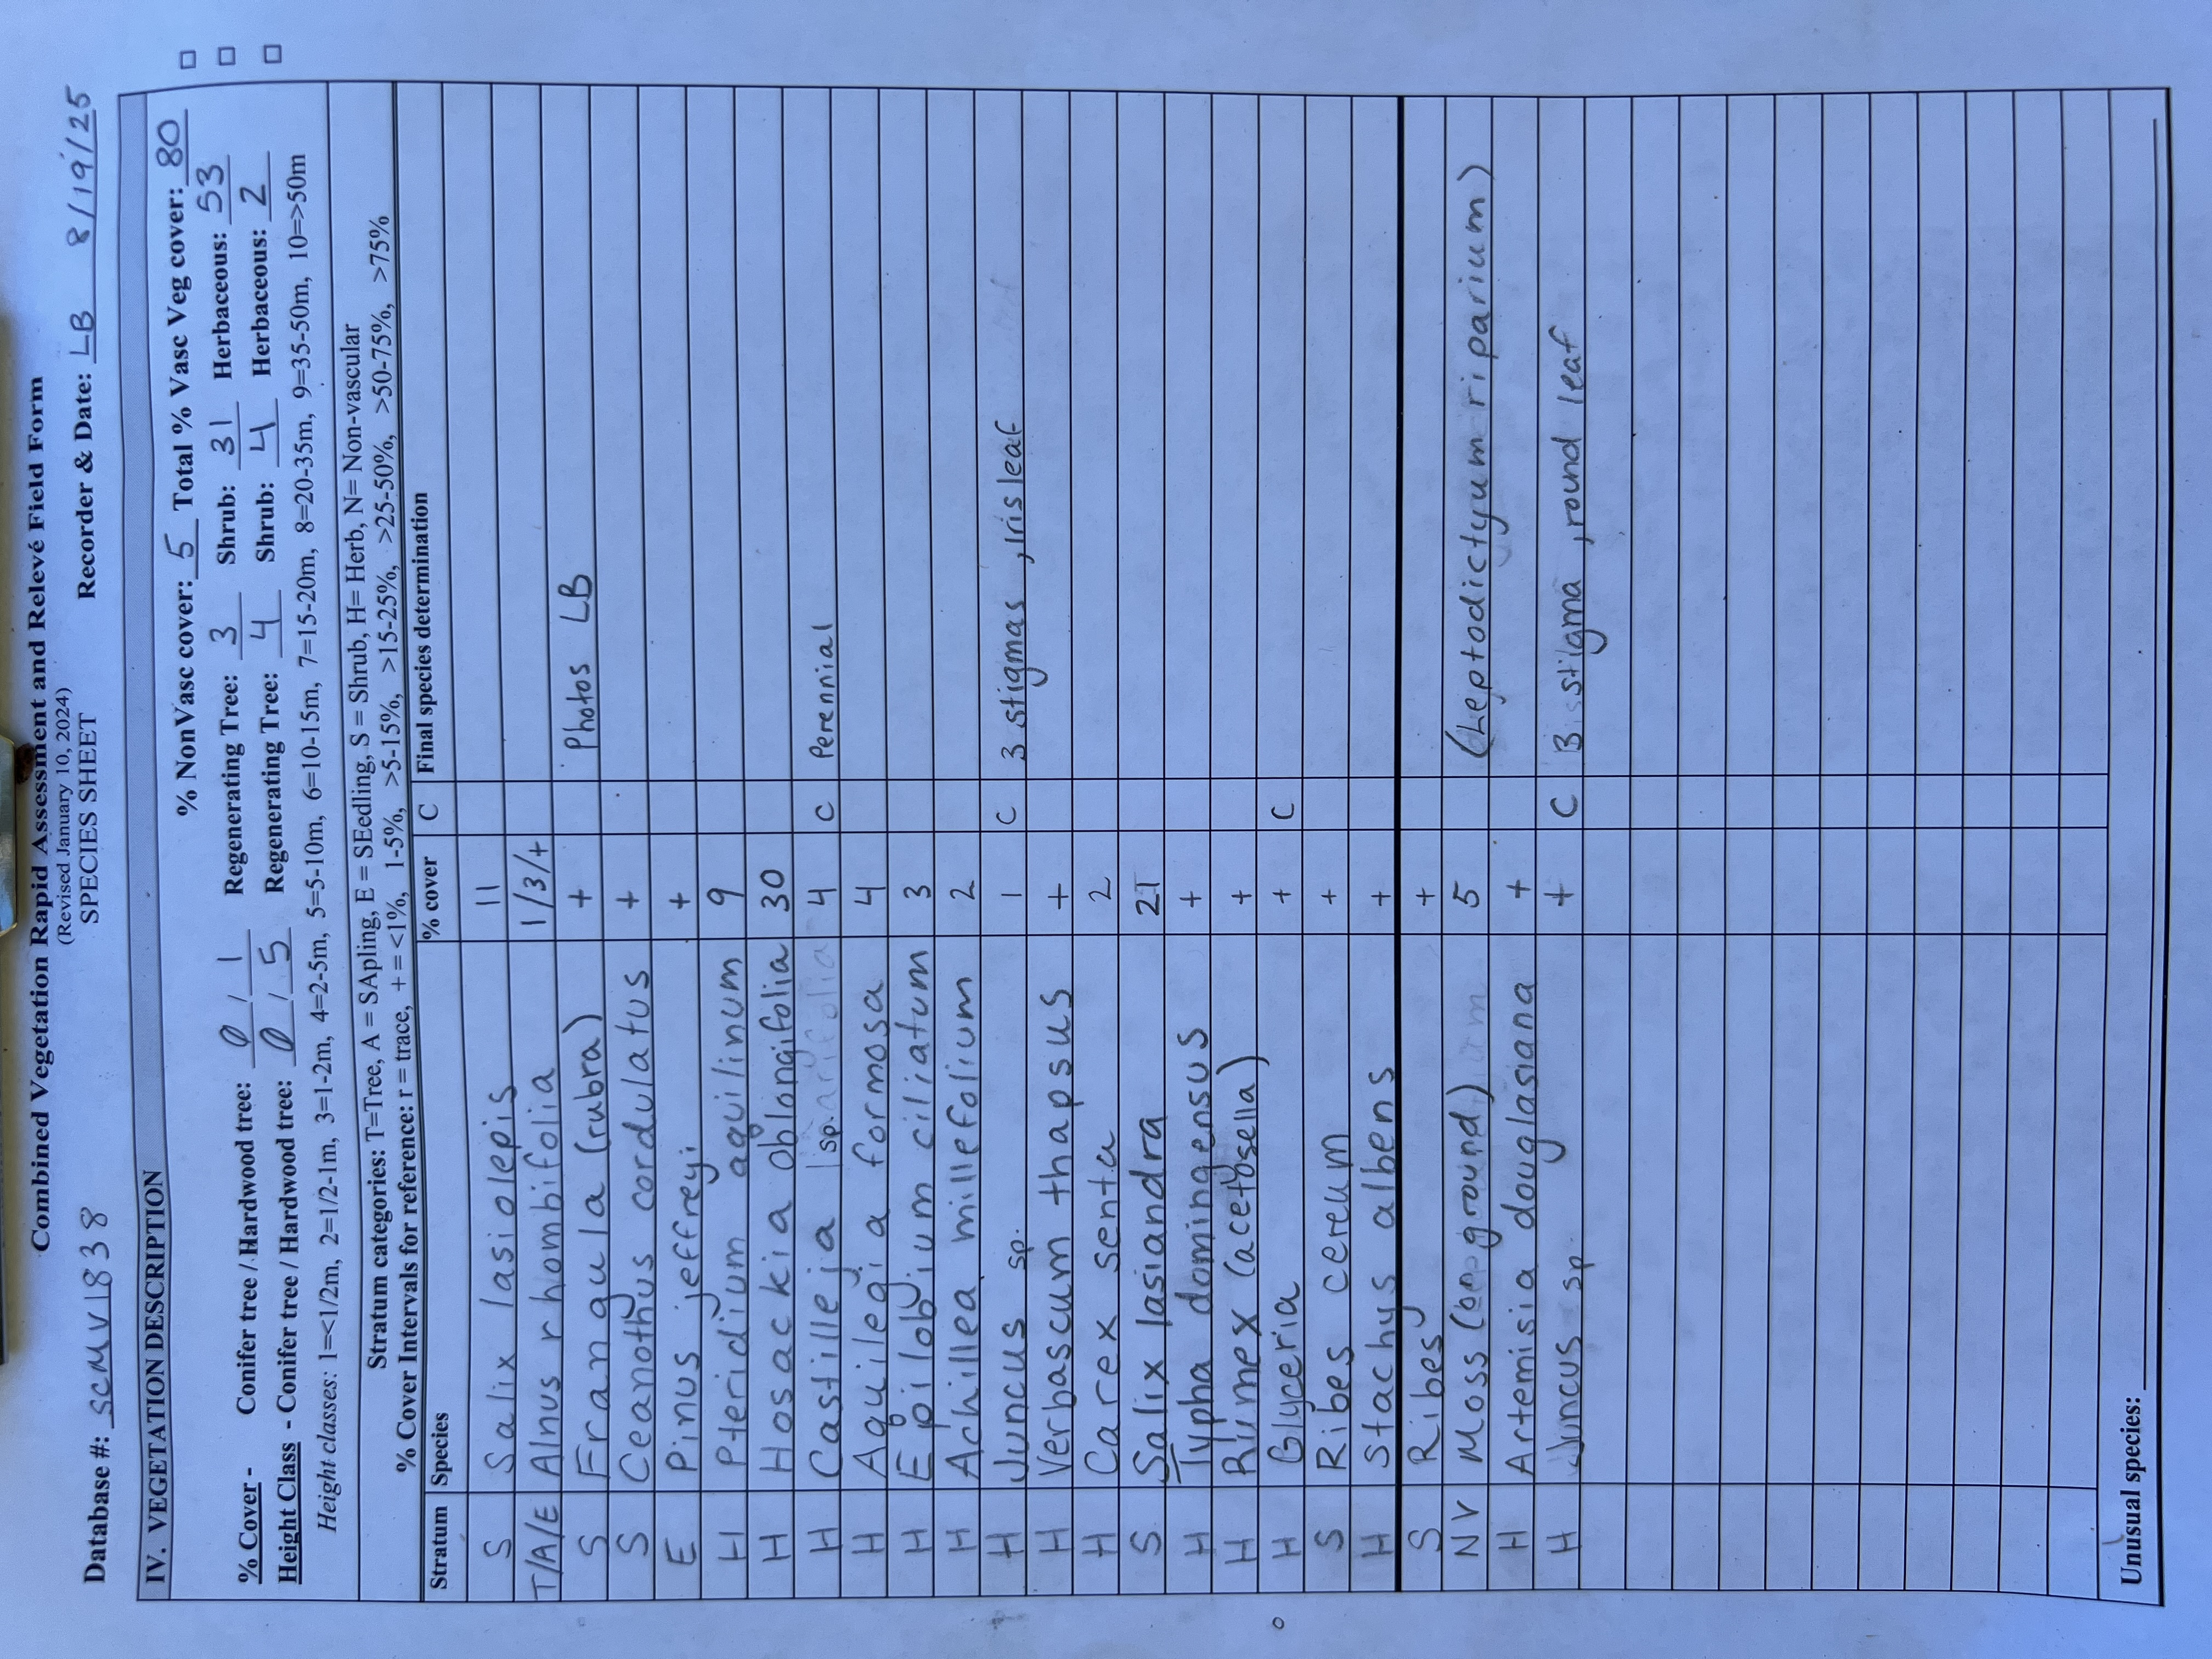 Combined Vegetation Rapid Assessment and Relevé Field Form
(Revised January 10, 2024)
SPECIES SHEET
Database #: SCMV1838 Recorder & Date: LB 8/19/25
IV. VEGETATION DESCRIPTION
% NonVasc cover: 5 Total % Vasc Veg cover: 80
% Cover - Conifer tree / Hardwood tree: 0 / 1 Regenerating Tree: 3 Shrub: 31 Herbaceous: 53
Height Class - Conifer tree / Hardwood tree: 0 / 5 Regenerating Tree: 4 Shrub: 4 Herbaceous: 2
Height classes: 1=<1/2m, 2=1/2-1m, 3=1-2m, 4=2-5m, 5=5-10m, 6=10-15m, 7=15-20m, 8=20-35m, 9=35-50m, 10=>50m
Stratum categories: T=Tree, A = SApling, E = SEedling, S = Shrub, H= Herb, N= Non-vascular
% Cover Intervals for reference: r = trace, + = <1%, 1-5%, >5-15%, >15-25%, >25-50%, >50-75%, >75%
Stratum Species % cover C Final species determination
S Salix lasiolepis 11
T/A/E Alnus rhombifolia 1/3/+
S Frangula (rubra) + Photos LB
S Ceanothus cordulatus +
E Pinus jeffreyi +
H Pteridium aquilinum 9
H Hosackia oblongifolia 30
H Castilleja sp. 4 C Perennial
H Aquilegia formosa 4
H Epilobium ciliatum 3
H Achillea millefolium 2
H Juncus sp. 1 C 3 stigmas, Iris leaf
H Verbascum thapsus +
H Carex senta 2
S Salix lasiandra 21
H Typha domingensus +
H Rumex (acetosella) +
H Glyceria + C
S Ribes cereum +
H Stachys albens +
S Ribes +
NV Moss (on ground) 5 (Leptodictyum riparium)
H Artemisia douglasiana +
H Juncus sp. + C 3 stigma, round leaf
Unusual species: